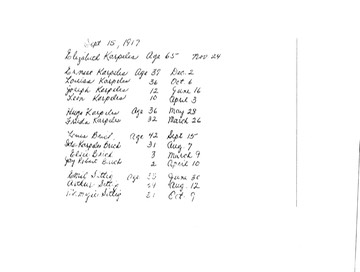 Sept 15, 1917
Elizabeth Karpeles Age 65 Nov 24
Karpeles Age 37 Dec. 2
Louisa Karpeles 36 Oct. 6
Joseph Karpeles 12 June 16
Leon Karpeles 10 April 3
Hugo Karpeles Age 36 May 28
Frieda Karpeles 32 March 26
Louis Brick Age 42 Sept 15
Karpeles Brick 31 Aug 7
Elsie Brick 3 March 9
Robert Brick 2 April 10
Age June 30
Arthur Aug. 12
21 Oct. 7